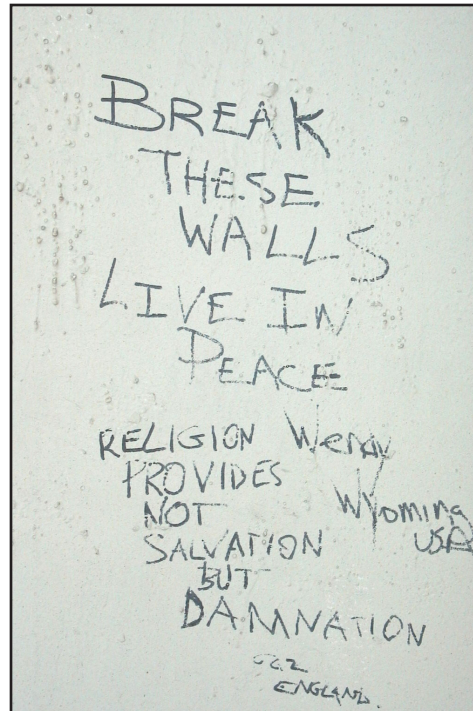 BREAK
THESE
WALLS
LIVE IN
PEACE
RELIGION
PROVIDES
NOT
SALVATION
BUT
DAMNATION
ENGLAND.
Wyoming
USA